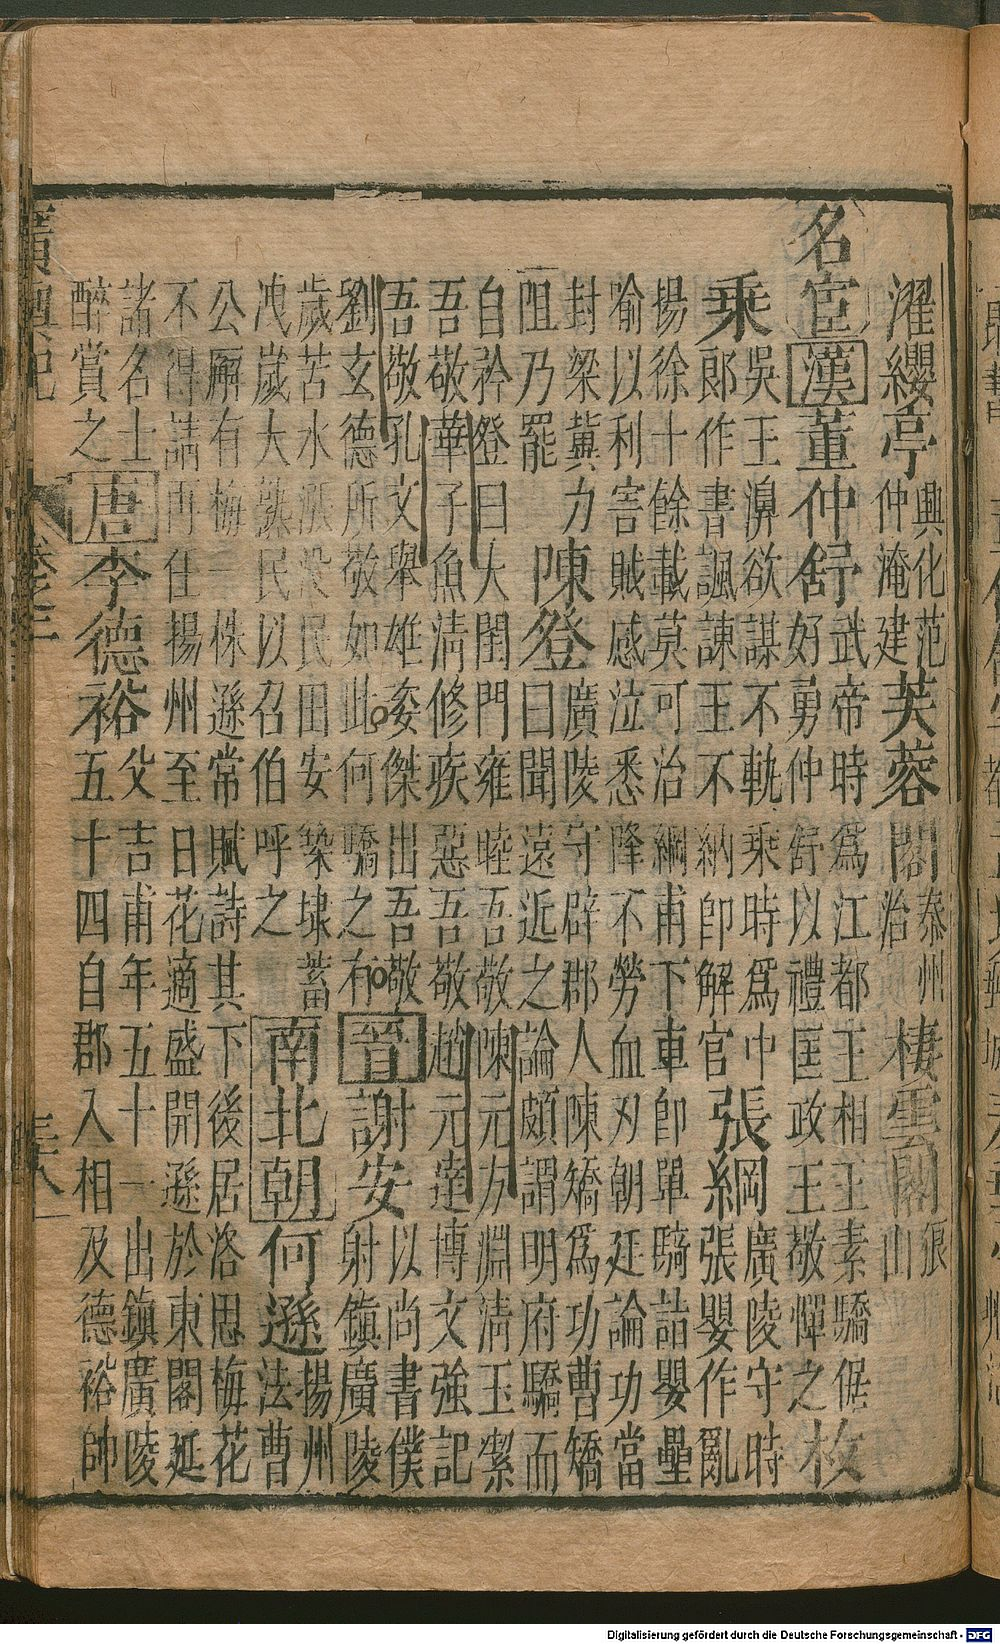 濯纓亭 興化范仲淹建 芙蓉閣 泰州治 棲雲閣 狼山
名宦 漢 董仲舒 武帝時爲江都王相王素驕倨好勇仲舒以禮匡政王敬憚之 枚
乘 吳王濞欲謀不軌乘時爲中郎作書諷諫王不納卽解官 張綱 廣陵守時張嬰作亂
揚徐十餘載莫可治綱甫下車卽單騎詰嬰壘喻以利害賊感泣悉降不勞血刃朝廷論功當
封梁冀力阻乃罷 陳登 廣陵守辟郡人陳矯爲功曹矯曰聞遠近之論頗謂明府驕而
自矜登曰大閨門雍睦吾敬陳元方淵清玉潔吾敬華子魚清修疾惡吾敬趙元達博文強記
吾敬孔文舉雄姿傑出吾敬劉玄德所敬如此何驕之有 晉 謝安 以尚書僕射鎮廣陵
歲苦水漲没民田安築埭蓄洩歲大熟民以召伯呼之 南北朝 何遜 揚州法曹
公廨有梅一株遜常賦詩其下後居洛思梅花不得請再仕揚州至日花適盛開遜於東閣延
諸名士醉賞之 唐 李德裕 父吉甫年五十一出鎮廣陵五十四自郡入相及德裕帥
廣輿記 卷之三
Digitalisierung gefördert durch die Deutsche Forschungsgemeinschaft - DFG